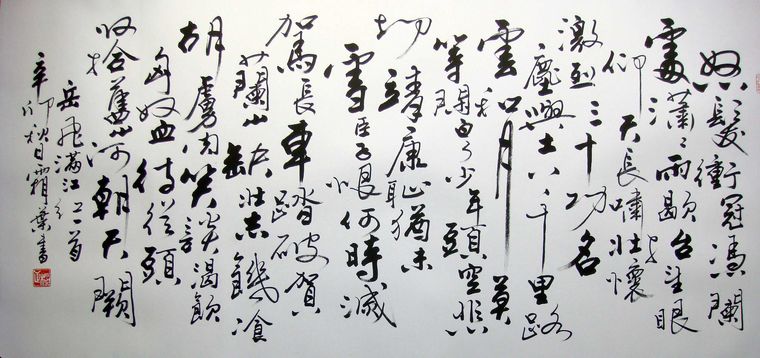 怒髮衝冠馮闌
處瀟瀟雨歇抬望眼
仰天長嘯壯懷
激烈三十功名
塵與土八千里路
雲和月莫
等閑白了少年頭空悲
切靖康恥猶未
雪臣子恨何時滅
駕長車踏破賀
蘭山缺壯志饑湌
胡虜肉笑談渴飲
匈奴血待從頭
收拾舊山河朝天闕
岳飛滿江紅一首
辛卯秋日霜葉書